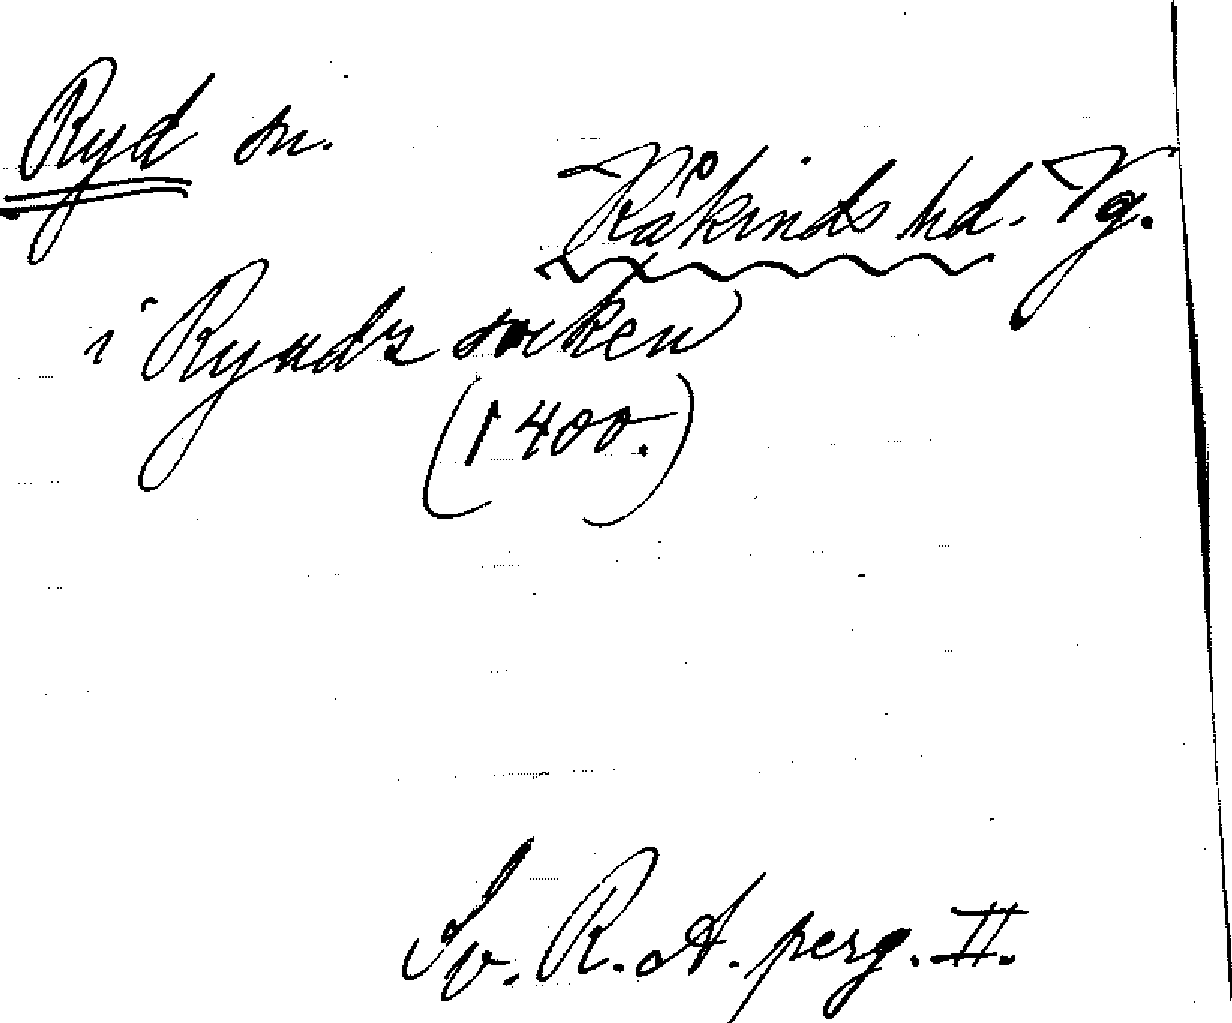 Ryd sn.
Kåkinds hd. Vg.
i Ryudz soken
(1400.)
Sv. R. A. perg. II.